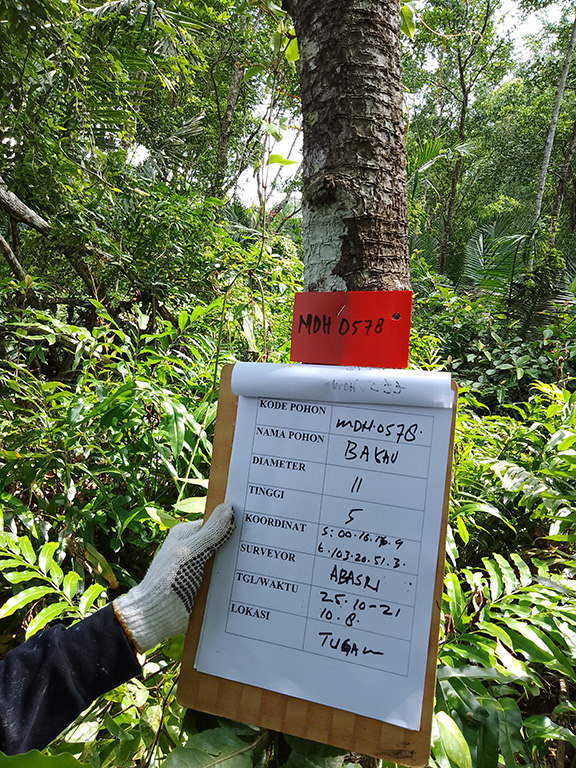 MDH 0578
KODE POHON MDH.0578.
NAMA POHON BAKAU
DIAMETER 11
TINGGI 5
KOORDINAT S: 00.16.16.9
E: 103.20.51.3.
SURVEYOR ABASRI
TGL/WAKTU 25.10-21
10.8.
LOKASI TUGAU